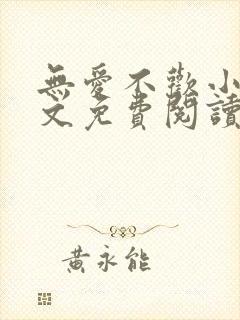 無愛不歡小
文免費閱讀
黃永能